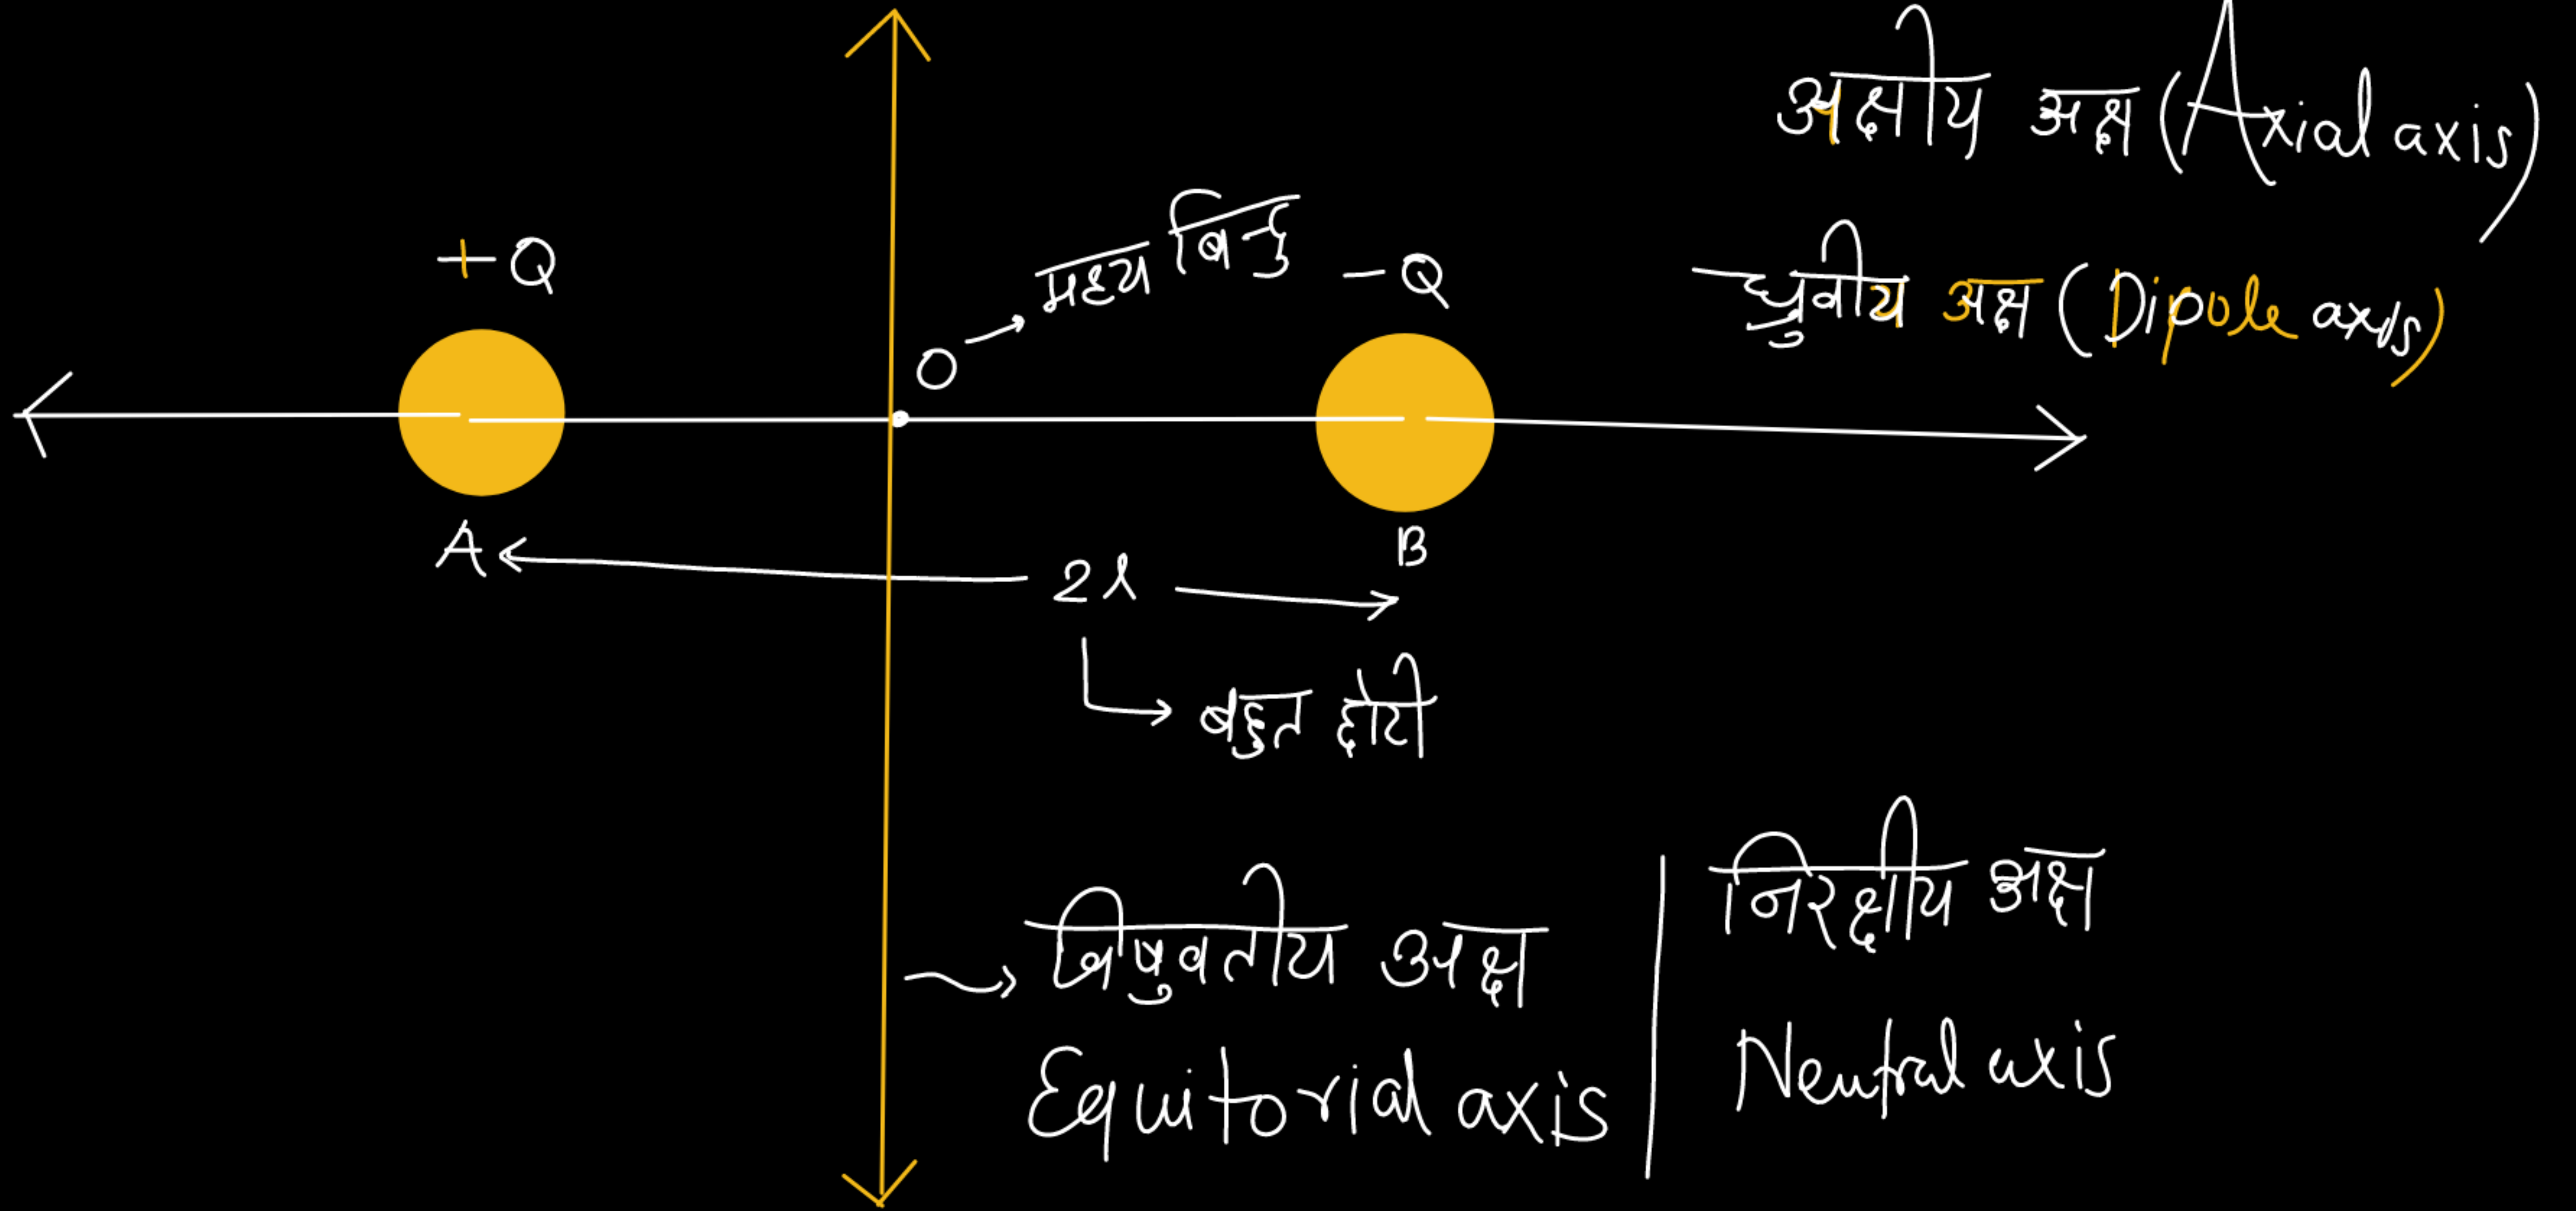 अक्षीय अक्ष (Axial axis)
ध्रुवीय अक्ष (Dipole axis)
+Q
O → मध्य बिन्दु
-Q
A
B
2l
बहुत छोटी
विषुवतीय अक्ष
Equitorial axis
निरक्षीय अक्ष
Neutral axis